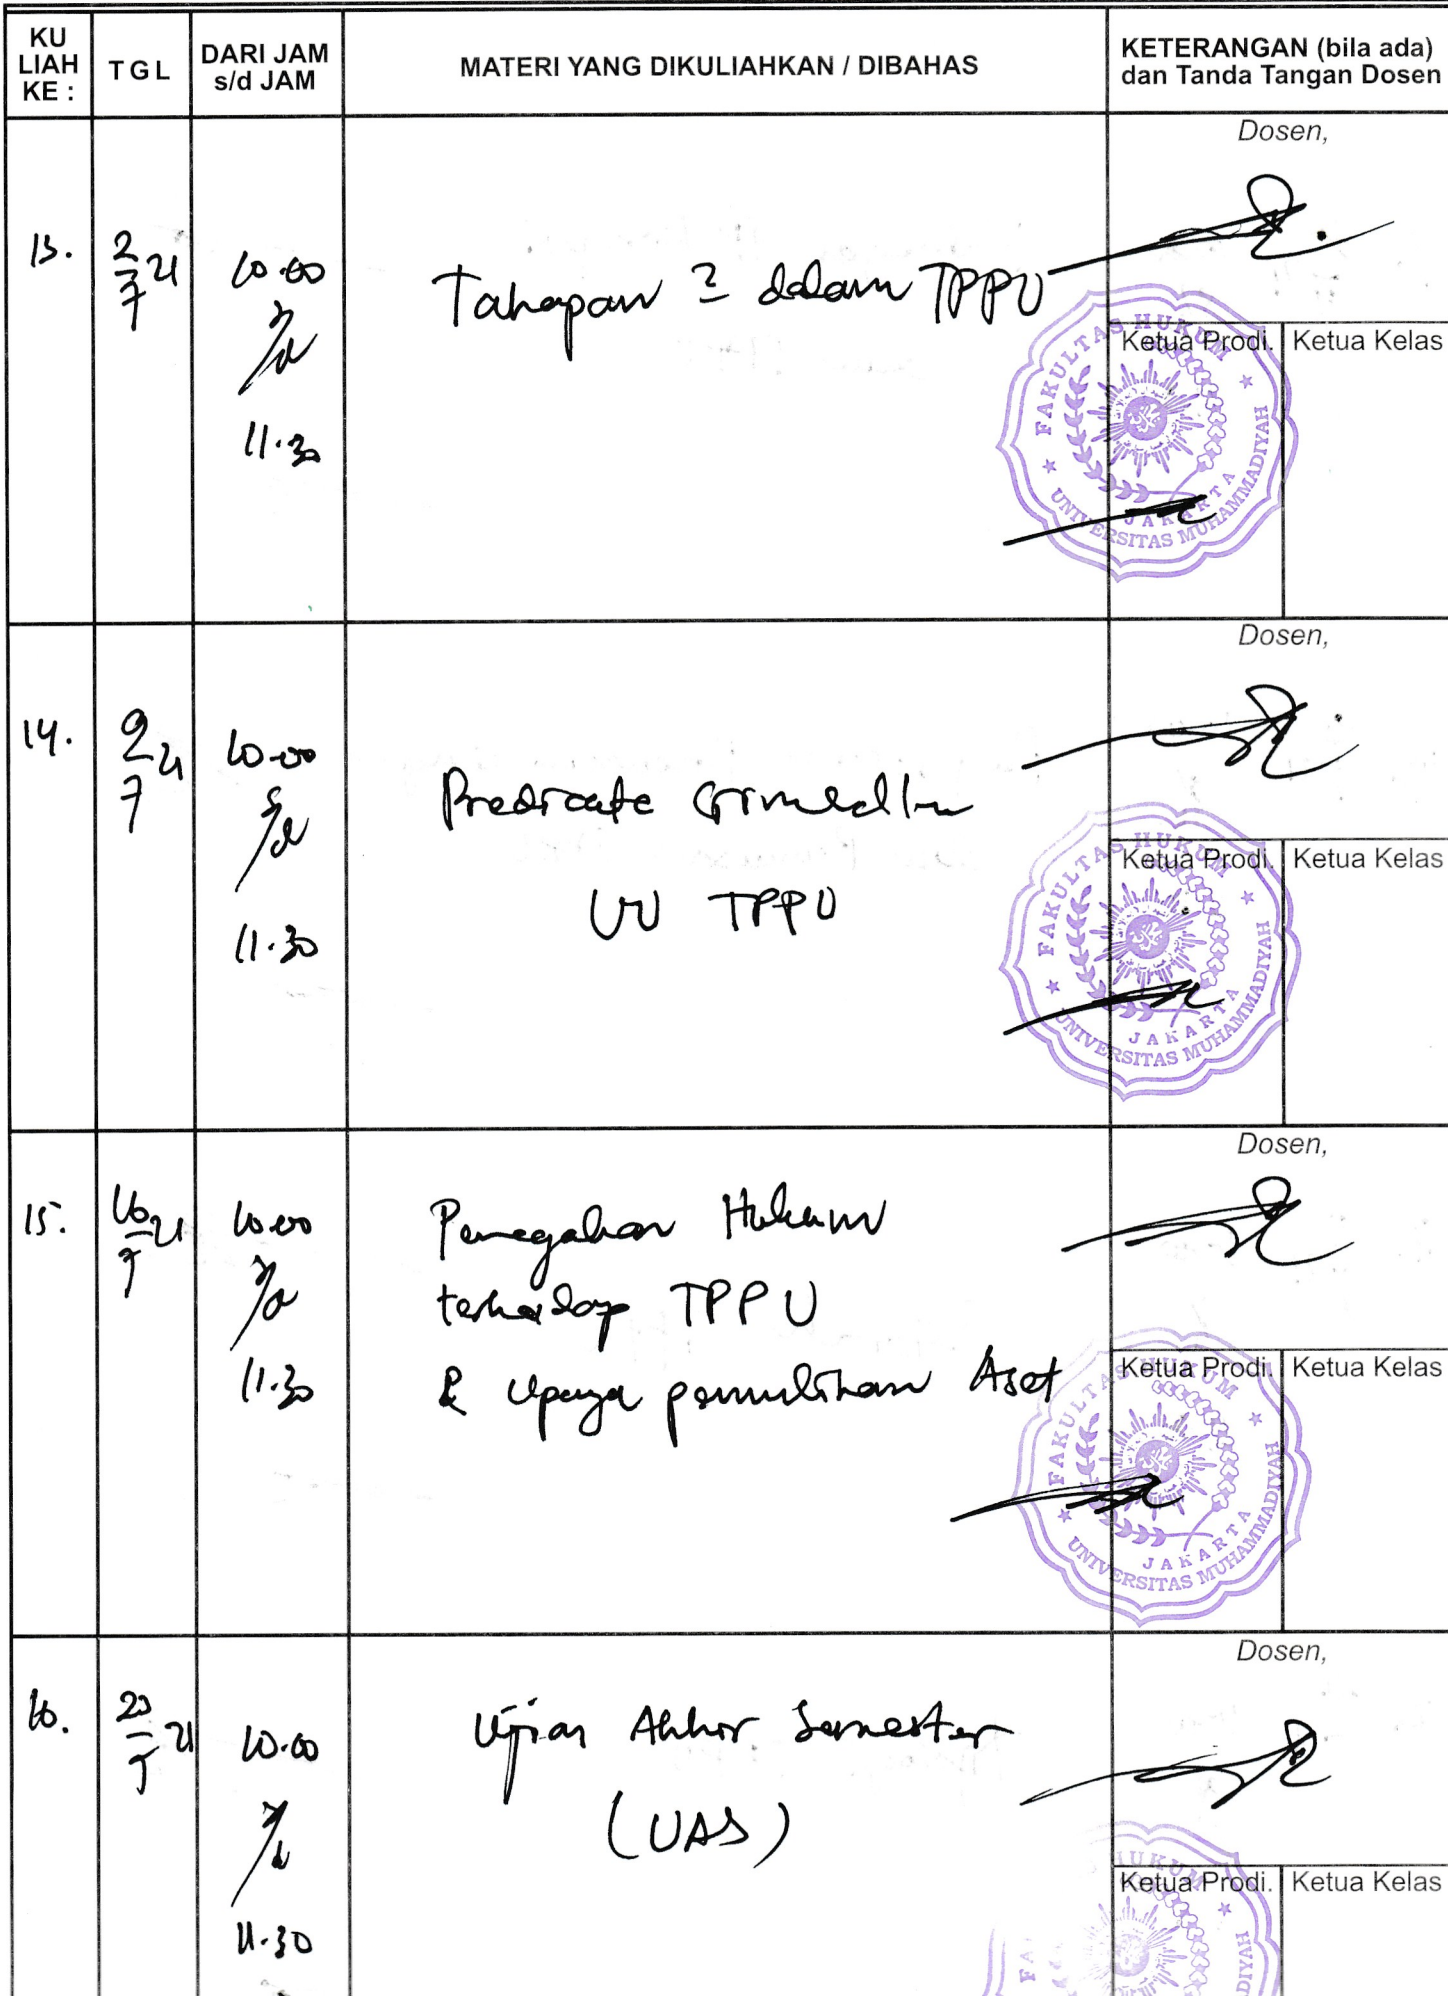 KU
LIAH
KE :
TGL
DARI JAM
s/d JAM
MATERI YANG DIKULIAHKAN / DIBAHAS
KETERANGAN (bila ada)
dan Tanda Tangan Dosen
13.
2/7 21
10.00
s/d
11.30
Tahapan 2 dalam TPPU
Dosen,
Ketua Prodi.
Ketua Kelas
FAKULTAS HUKUM
UNIVERSITAS MUHAMMADIYAH
JAKARTA
14.
9/7 21
10.00
s/d
11.30
Predicate Crime dlm
UU TPPU
Dosen,
Ketua Prodi.
Ketua Kelas
FAKULTAS HUKUM
UNIVERSITAS MUHAMMADIYAH
JAKARTA
15.
16/7 21
10.00
s/d
11.30
Penegahan Hukum
terhadap TPPU
& upaya pemulihan Aset
Dosen,
Ketua Prodi.
Ketua Kelas
FAKULTAS HUKUM
UNIVERSITAS MUHAMMADIYAH
JAKARTA
16.
21
10.00
s/d
11.30
Ujian Akhir Semester
(UAS)
Dosen,
Ketua Prodi.
Ketua Kelas
HUKUM